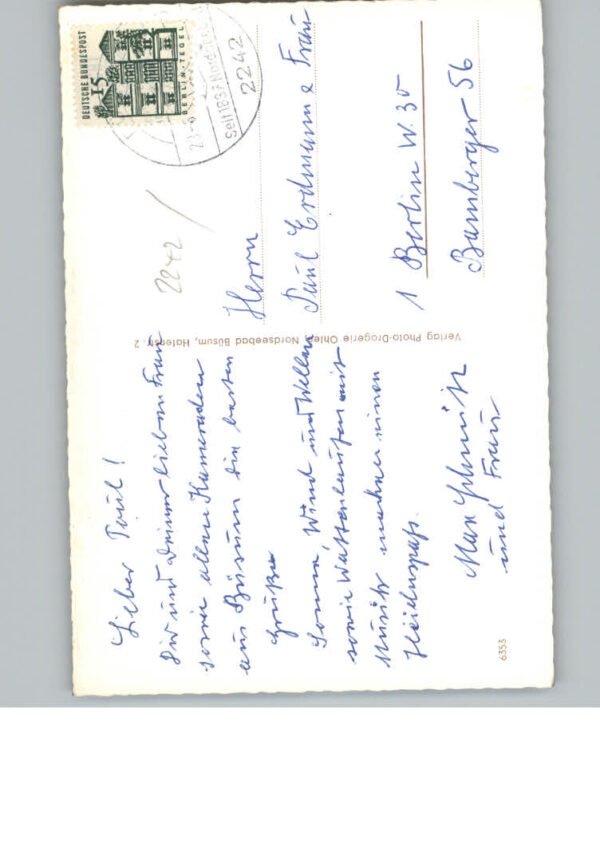 Lieber Paul!
Dir und Deiner lieben Frau
sowie allen Kameraden
aus Büsum die besten
Grüße
Sonne, Wind und Wellen
sowie Wattenlaufen mit
Musik machen einen
Heidenspaß.
Max Schmitz
und Frau
Verlag Photo-Drogerie Ohlen, Nordseebad Büsum, Hafenstr. 2
6353
DEUTSCHE BUNDESPOST
15
BERLIN-TEGEL
2242
seit 1837 Nord
2242
Herrn
Paul Erdmann & Frau
1 Berlin W. 30
Bamberger 56